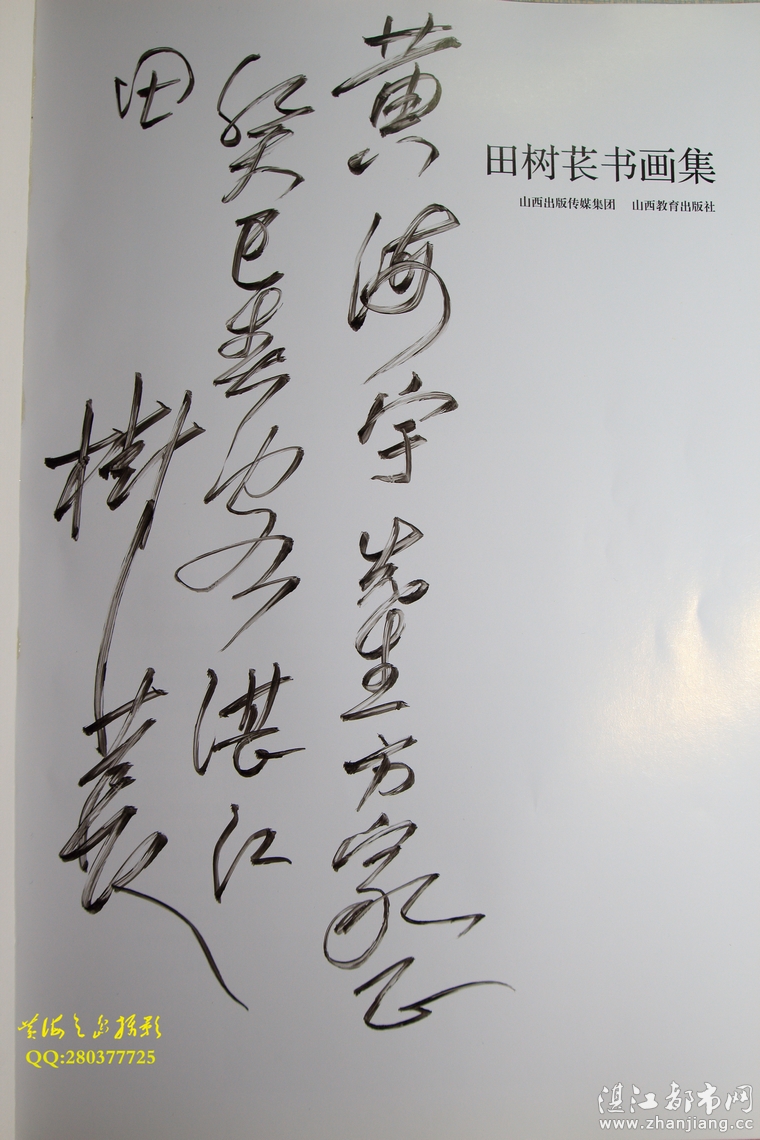 田树苌书画集
山西出版传媒集团 山西教育出版社
黄海宇先生方家正
癸巳春客湛江
田樹萇
QQ:280377725
湛江都市网
www.zhanjiang.cc